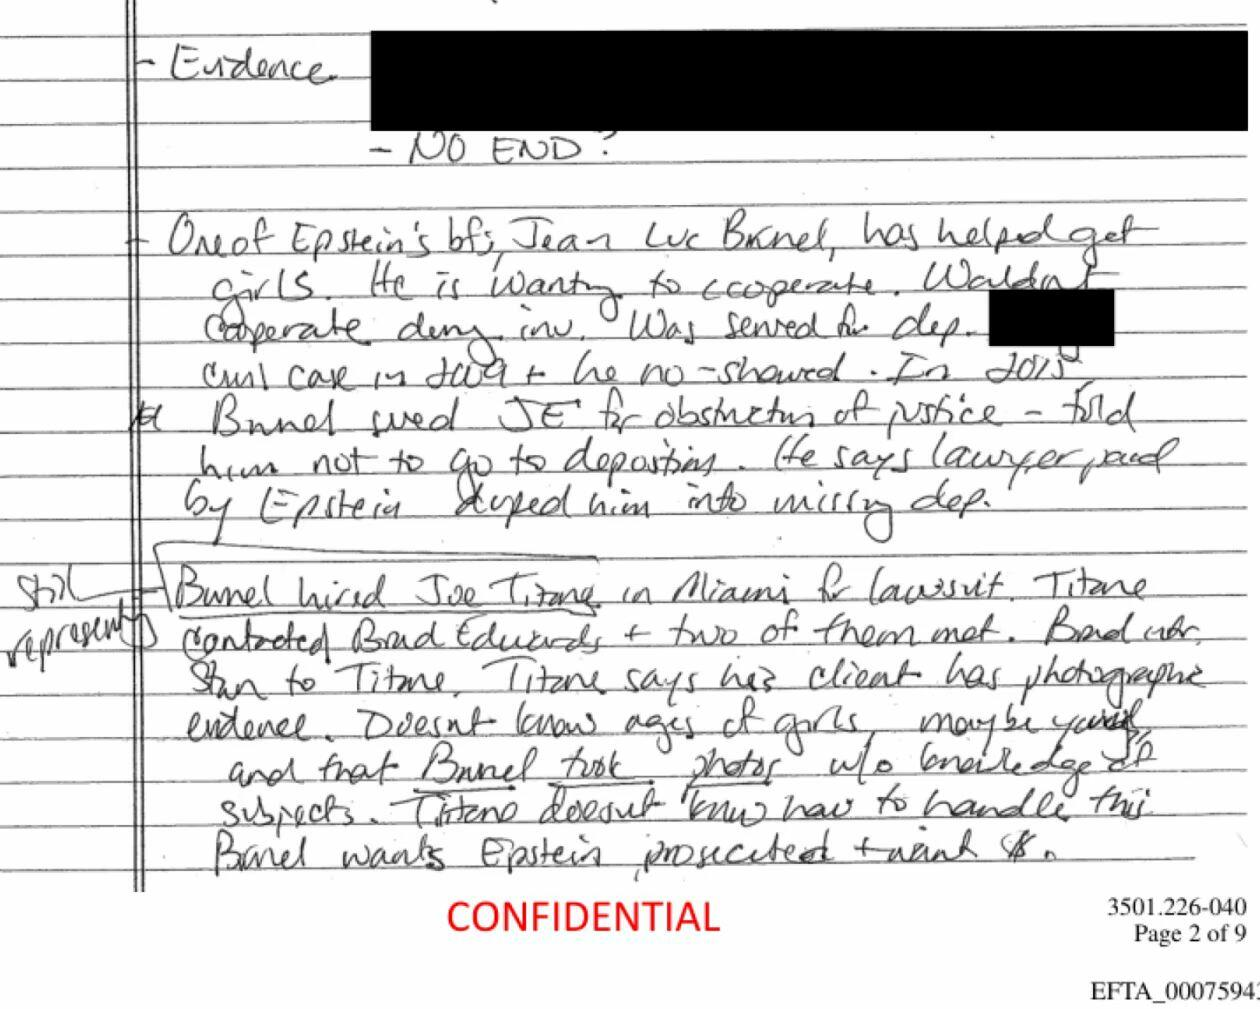 - Evidence
- NO END?
- One of Epstein's bfs, Jean Luc Brunel, has helped get
girls. He is wanting to cooperate. Wouldn't
cooperate during inv. Was served for dep.
civil case in 2009 + he no-showed. In 2015
Brunel sued JE for obstruction of justice - told
him not to go to deposition. He says lawyer paid
by Epstein duped him into missing dep.
Still
represents
- Brunel hired Joe Titone in Miami for lawsuit. Titone
contacted Brad Edwards + two of them met. Brad
Stan to Titone. Titone says his client has photographic
evidence. Doesnt know ages of girls, maybe
and that Brunel took photos w/o knowledge of
subjects. Titone doesnt know how to handle this
Brunel wants Epstein prosecuted + want $.
CONFIDENTIAL
3501.226-040
Page 2 of 9
EFTA_0007594